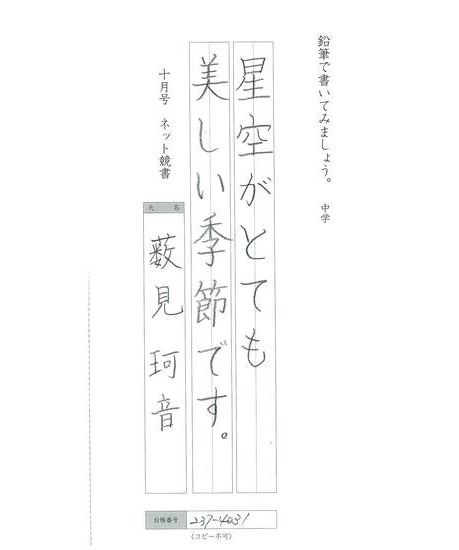 鉛筆で書いてみましょう。 中学
星空がとても
美しい季節です。
十月号 ネット競書
氏 名
薮見 珂音
台帳番号 237-4031
(コピー不可)